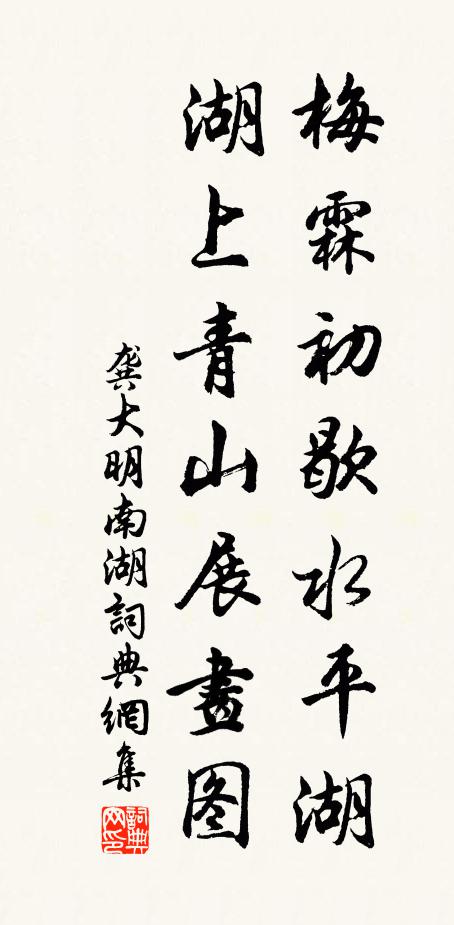 梅霖初歇水平湖
湖上青山展畫图
龚大明南湖詞典網集
詞典网印